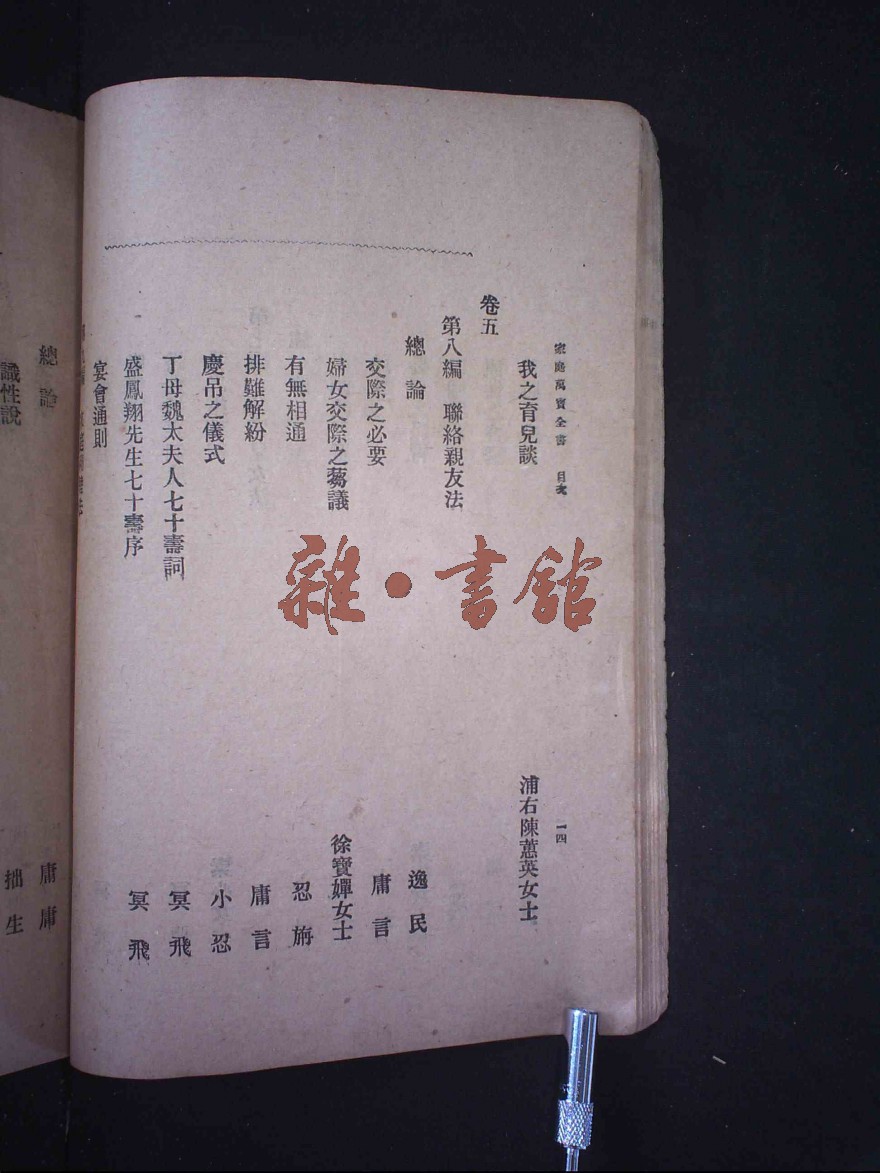 家庭萬寶全書　目次　一四
我之育兒談　浦右陳蕙英女士
卷五
第八編　聯絡親友法
總論　逸民
交際之必要　庸言
婦女交際之芻議　徐寶嬋女士
有無相通　忍旃
排難解紛　庸言
慶吊之儀式　小忍
丁母魏太夫人七十壽詞　冥飛
盛鳳翔先生七十壽序　冥飛
宴會通則
總論　庸庸
識性說　拙生
雜·書館